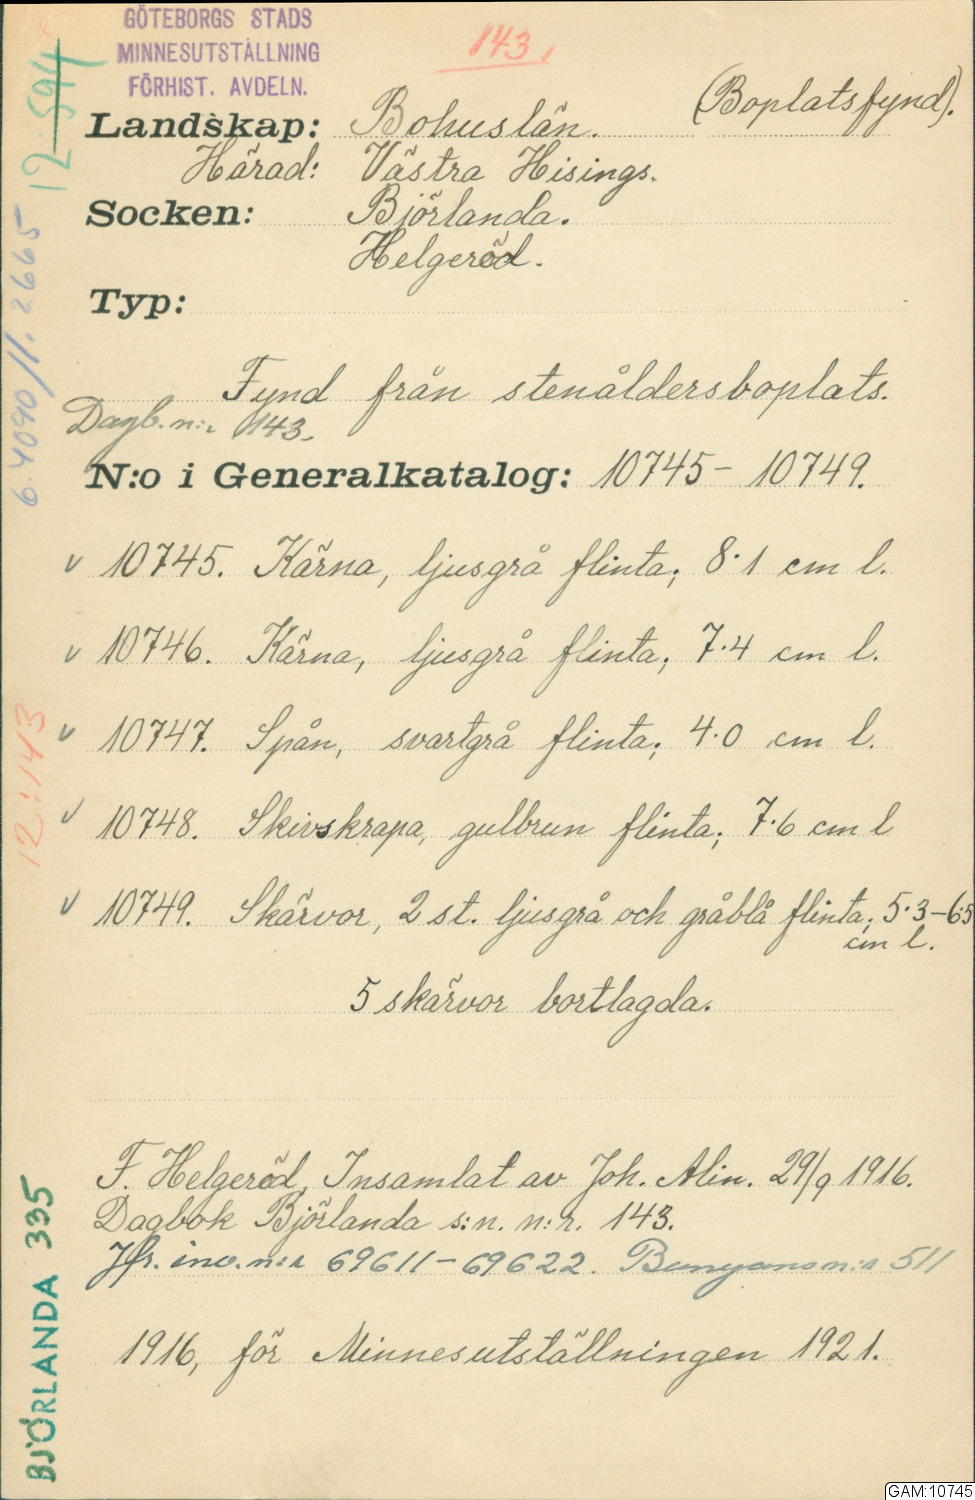 GÖTEBORGS STADS
MINNESUTSTÄLLNING
FÖRHIST. AVDELN.
143.
(Boplatsfynd).
Landskap: Bohuslän.
Härad: Västra Hisings.
Socken: Björlanda.
Helgeröd.
Typ:
Fynd från stenåldersboplats.
Dagb.n:r 143.
N:o i Generalkatalog: 10745 - 10749.
v 10745. Kärna, ljusgrå flinta; 8.1 cm l.
v 10746. Kärna, ljusgrå flinta; 7.4 cm l.
v 10747. Spån, svartgrå flinta; 4.0 cm l.
v 10748. Skivskrapa, gulbrun flinta; 7.6 cm l
v 10749. Skärvor, 2 st. ljusgrå och gråblå flinta; 5.3-6.5
cm l.
5 skärvor bortlagda.
F. Helgeröd, Insamlat av Joh. Alin. 29/9 1916.
Dagbok Björlanda s:n. n:r. 143.
Jfr. inv.n:r 69611-69622. Bunyans n:r 511
1916, för Minnesutställningen 1921.
12.594
6.4090/1.2665
12:143
BJÖRLANDA 335
GAM:10745